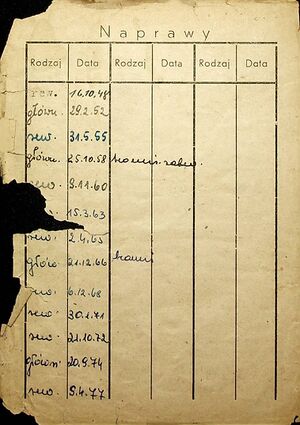 Naprawy
Rodzaj Data Rodzaj Data Rodzaj Data
rew. 16.10.48
główn. 29.2.52
rew. 31.5.55
główn. 25.10.58
rew. 9.11.60
15.3.63
rew. 2.4.65
główn. 21.12.66
rew. 6.12.68
rew. 30.1.71
rew. 21.10.72
główn. 20.9.74
rew. 9.4.77